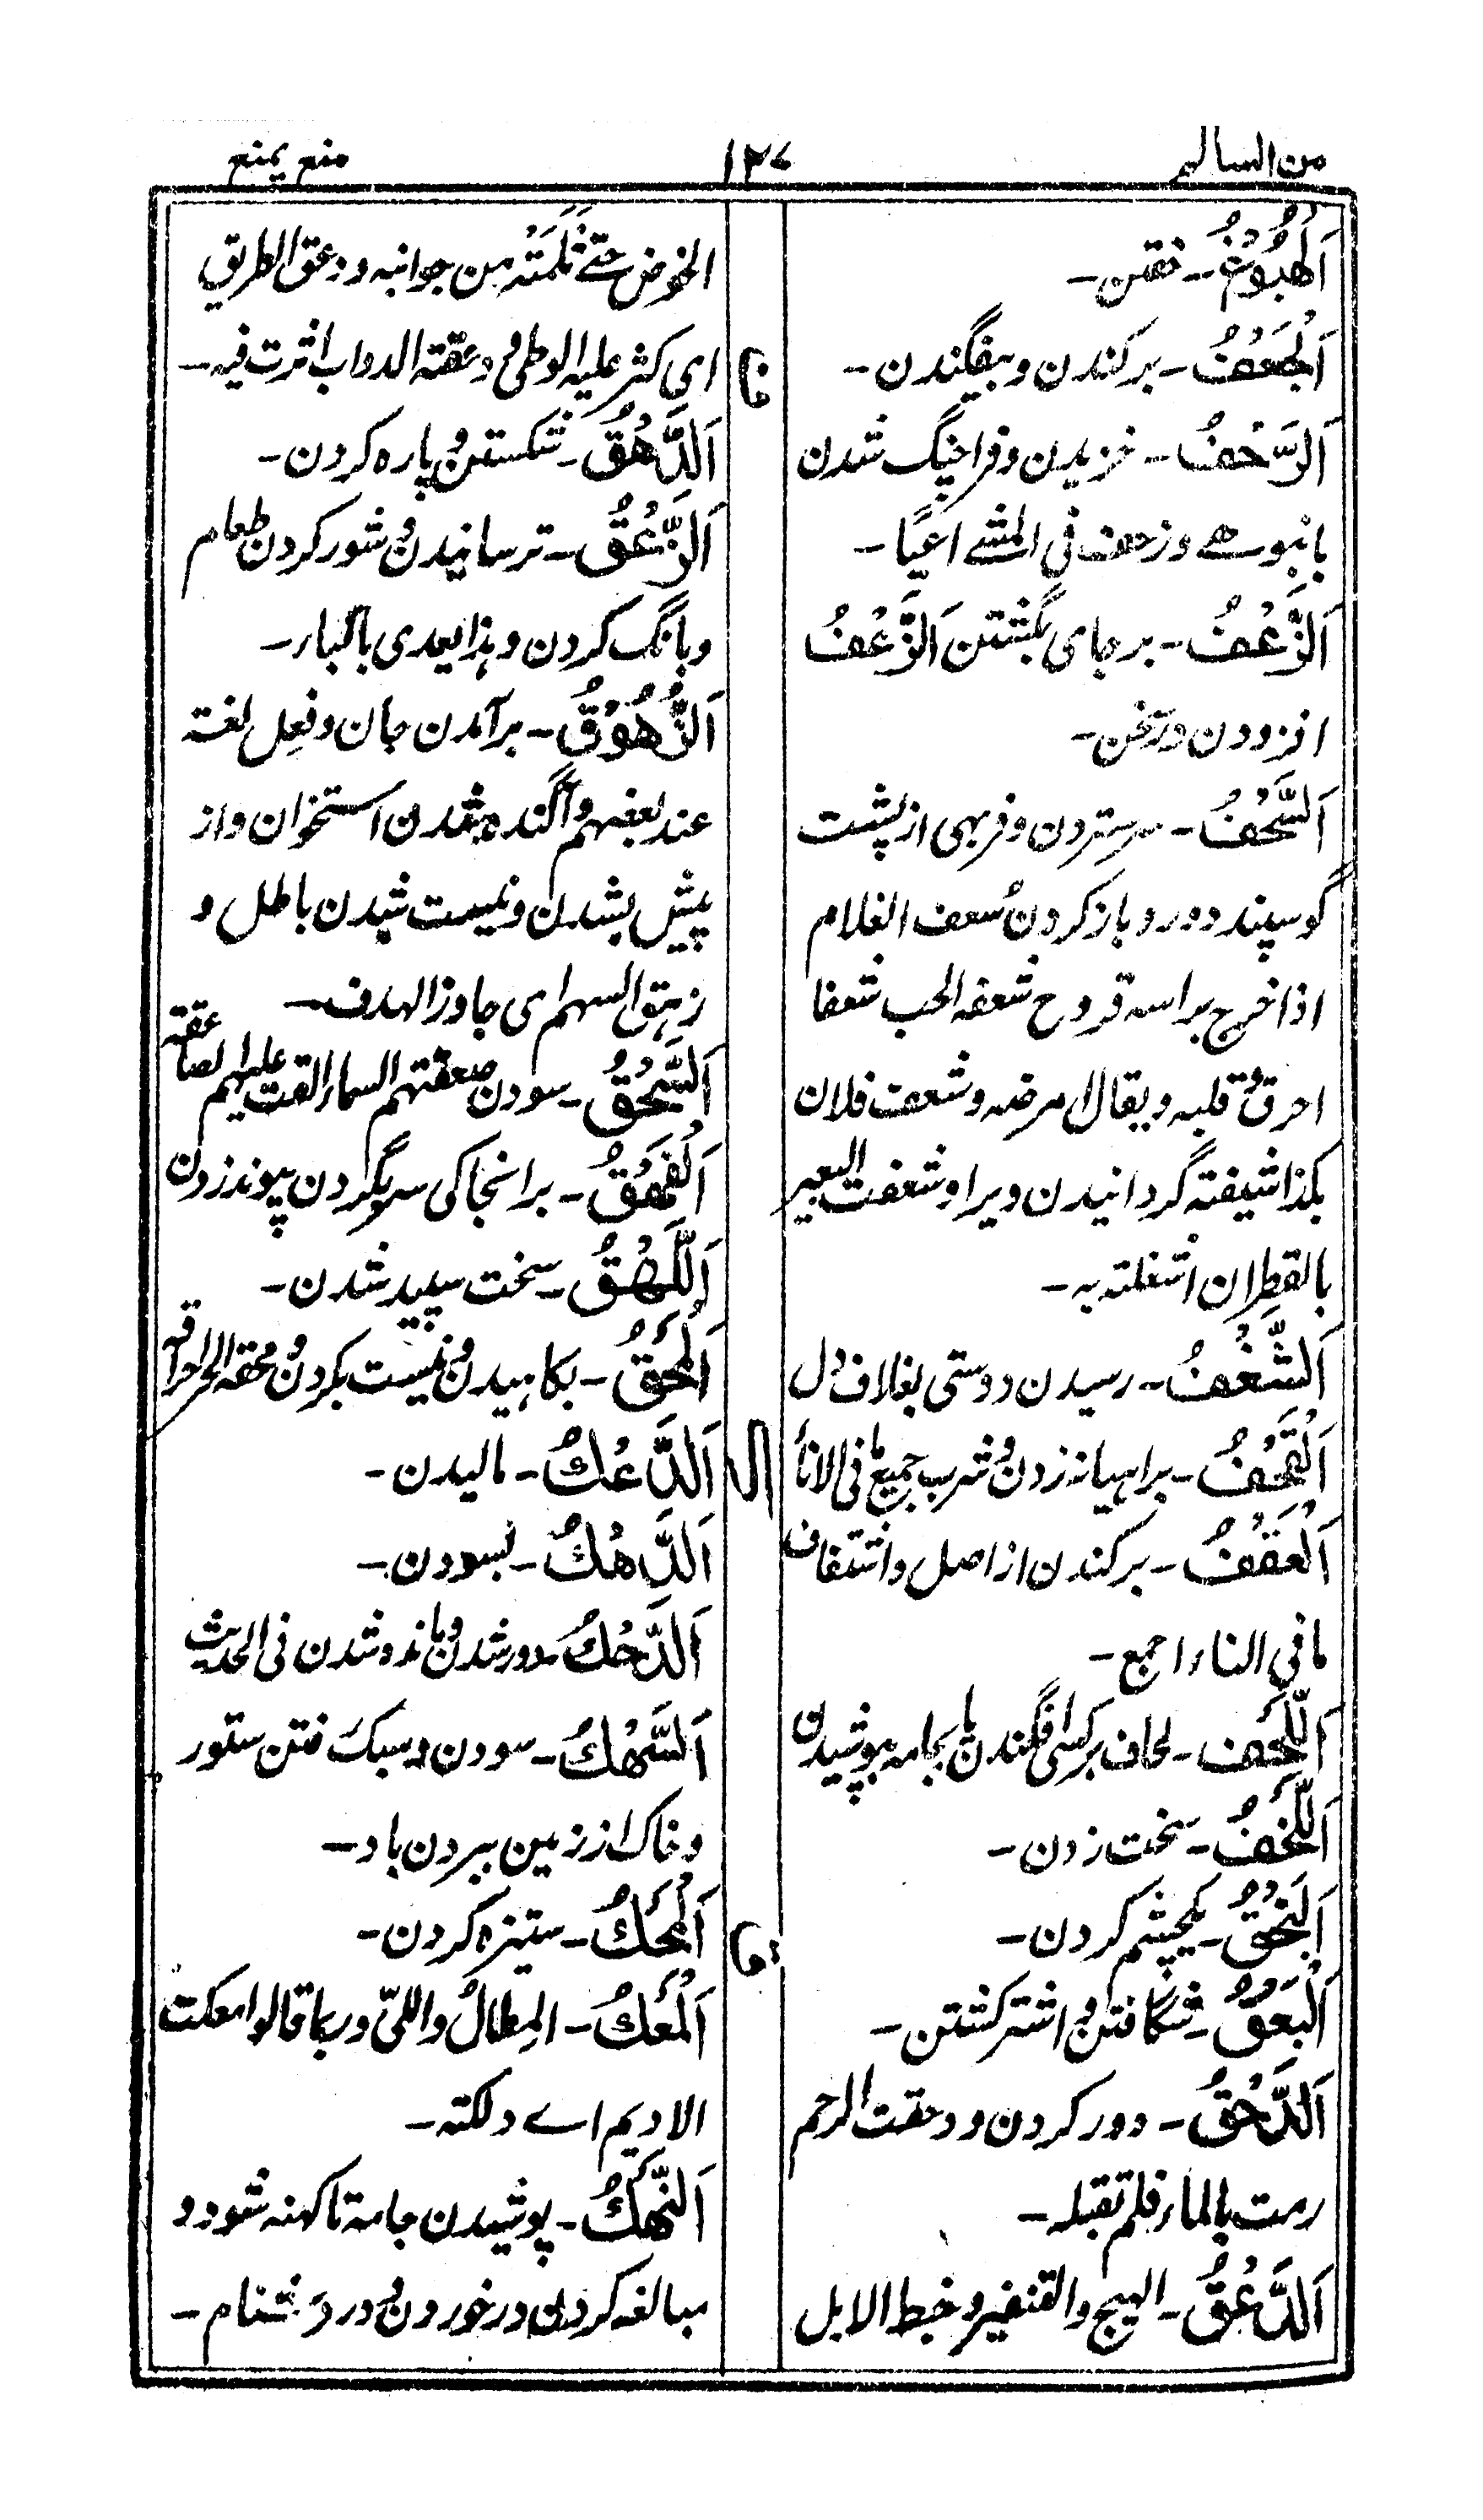 من السالم
١٢٧
منع يمنع
اَلْهُبُوْغُ ـ خفتن ـ
اَلْجَعْفُ ـ برکندن و بیفگندن ـ
اَلزَّحْفُ ـ خزیدن و فراجنگ شدن
بانبوهے و زحف فی المشے اعیا ـ
اَلزَّعْفُ ـ بر جای بکشتن اَلزَّعْفُ
افزودن در سخن ـ
اَلسَّحْفُ ـ سر ستردن و فربهی از پشت
گوسپند دور و باز کردن سُعف الغلام
اذا خرج براسه قروح شعفه الحب شعفا
احرق قلبه و یقال امرضه و شعف فلان
بکذا شیفته گردانیدن ویرا و شعفت البعیر
بالقطران اشغلته به ـ
اَلشَّغْفُ ـ رسیدن دوستی بغلاف دل
اَلْقَحْفُ ـ براہیانہ زدن و شرب جمیع ما فی الانأ
اَلْقَعْفُ ـ برکندن از اصل و اشتفاف
ما فی الناء اجمع ـ
اَللَّحْف ـ لحاف بر کسی افگندن یا بجامہ بپوشیدن
اَللَّخْفُ ـ سخت زدن ـ
قا
اَلْبَخْقُ ـ یکچشم کردن ـ
اَلْبَعْقُ ـ شگافتن و اشتر کشتن ـ
اَلدَّحْقُ ـ دور کردن و دحقت الرحم
رمت بالماء فلم تقبلہ ـ
اَلدَّعْقُ ـ الہیج و التنفیر و خبط الابل
الحوض حتے ثلمَتْہ من جوانبہ و دعق الطریق
فا
ای کثر علیہ الوطی و دعقتہ الدواب اثرت فیہ ـ
اَلدَّهْقُ ـ شکستن و پارہ کردن ـ
اَلزَّعْقُ ـ ترسانیدن و شور کردن طعام
و بانگ کردن و ہذا یعدی بالباء ـ
اَلزُّهُوْقُ ـ برآمدن جان و فعِل لغۃ
عند بعضہم و آگندہ شدن استخوان و از
پیش بشدن و نیست شدن باطل و
زہق السہم ای جاوز الہدف ـ
اَلسَّحْقُ ـ سودن صعقتہم السماء القت علیہم الصاعقۃ
اَلْفَهْقُ ـ برانجا کی سر بگردن پیوند زدن
اَللَّهْقُ ـ سخت سپید شدن ـ
اَلْمَحْقُ ـ بکاہیدن و نیست بکردن و محقہ الحر احراقہ
ال
اَلدَّعْكُ ـ مالیدن ـ
اَلدَّهْكُ ـ بسودن ـ
اَلدَّحْكُ ـ دور شدن و ماندہ شدن فی الحدیث
اَلسَّهْكُ ـ سودن و سبک رفتن ستور
و خاک از زمین ببردن باد ـ
اَلْمَحْكُ ـ ستیزہ کردن ـ
اَلْمَعْكُ ـ المِطالُ و اللیّ و ربما قالوا معکت
الادیم اے دلکتہ ـ
اَلنَّهْكُ ـ پوشیدن جامہ تا کہنہ شود و
مبالغہ کردن در خوردن و در دشنام ـ